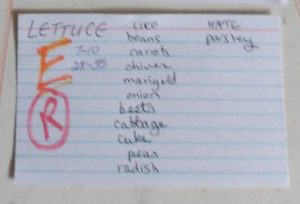 LETTUCE LIKE HATE
E 7-10 beans parsley
carrots
chives
marigold
onion
R beets
cabbage
cuke
peas
radish